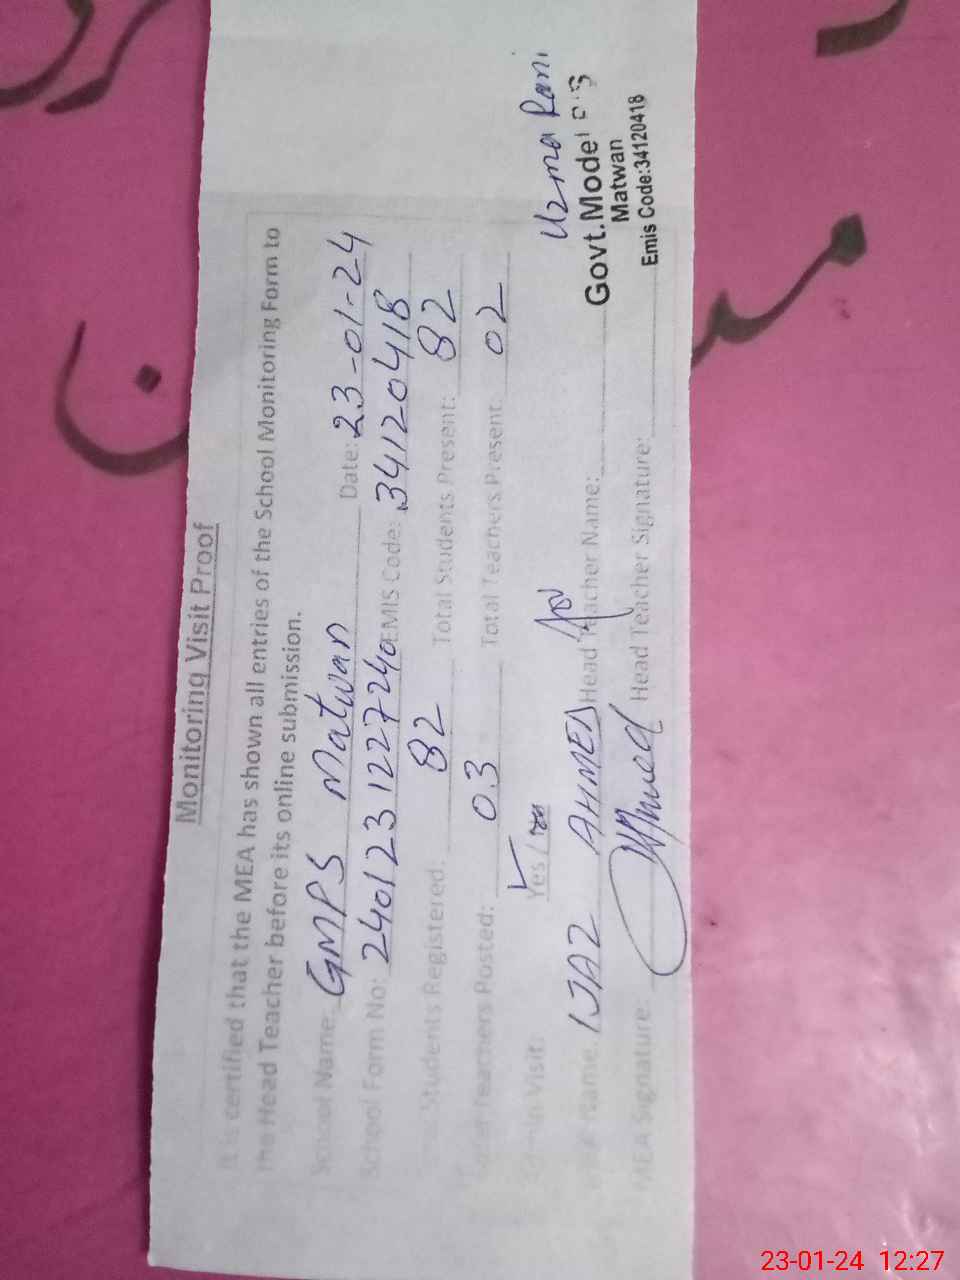 Monitoring Visit Proof
It is certified that the MEA has shown all entries of the School Monitoring Form to
the Head Teacher before its online submission.
School Name: GMPS Matwan Date: 23-01-24
School Form No: 240123122724 EMIS Code: 34120418
Students Registered: 82 Total Students Present: 82
Teachers Posted: 03 Total Teachers Present: 02
Admin Visit: Yes /
Name: IJAZ AHMED Head Teacher Name: Uzma Rani
MEA Signature: Head Teacher Signature:
Govt.Model
Matwan
Emis Code:34120418
23-01-24 12:27